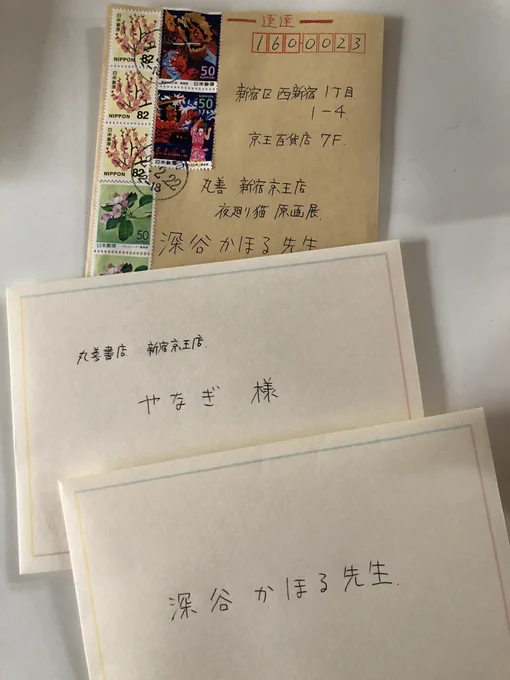 速達
1600023
新宿区 西新宿 1丁目
1-4
京王百貨店 7F.
丸善 新宿京王店
夜廻り猫 原画展.
深谷かほる先生
82
NIPPON
日本郵便
82
NIPPON
日本郵便
82
NIPPON
日本郵便
50
日本郵便
50
50
丸善書店 新宿京王店.
やなぎ 様
深谷 かほる 先生.